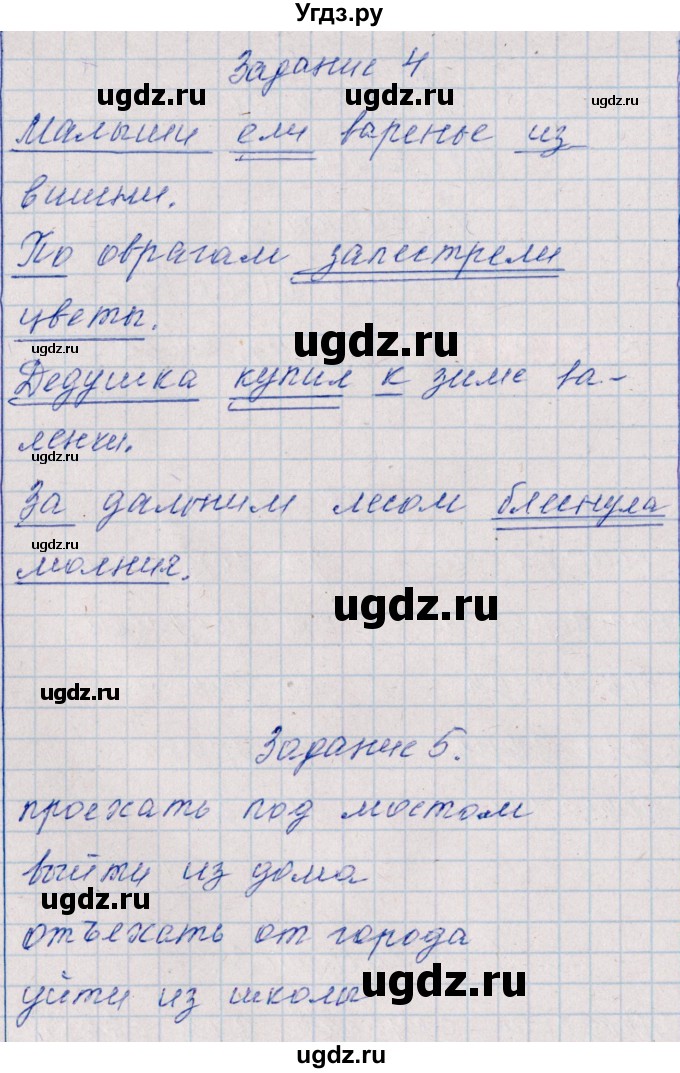 Угдз.ру
Задание 4
ugdz.ru ugdz.ru ugdz.ru
Малыши ели варенье из
вишни.
По оврагам запестрели
цветы.
ugdz.ru ugdz.ru
Дедушка купил к зиме ва-
ленки.
ugdz.ru
За дальним лесом блеснула
ugdz.ru
молния.
ugdz.ru
ugdz.ru
Задание 5.
проехать под мостом
выйти из дома
ugdz.ru
отъехать от города
ugdz.ru
уйти из школы
ugdz.ru